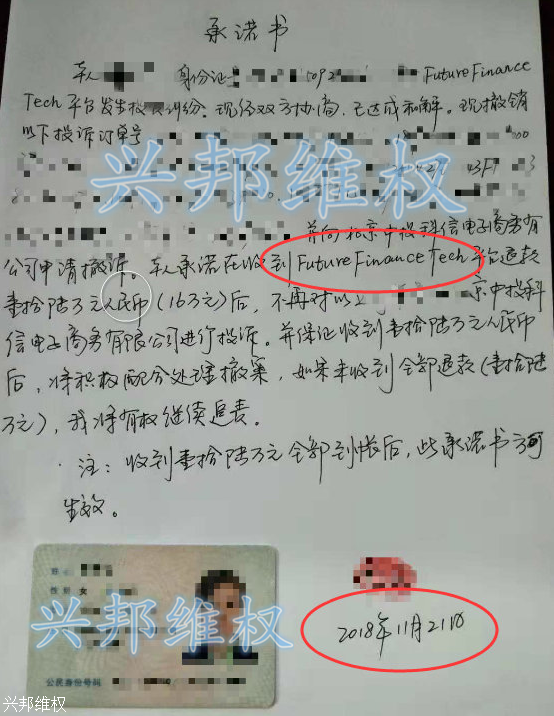 承诺书
本人 身份证 5092 Future Finance
Tech 平台发生投 纠纷。现经双方协商,已达成和解。现撤销
以下投诉订单号 00
兴邦维权
并向北京中投科信电子商务有
公司申请撤诉。本人承诺在收到 Future Finance Tech 平台退款
壹拾陆万元人民币(16万元)后,不再对以 京中投科
信电子商务有限公司进行投诉。并保证收到壹拾陆万元人民币
后,将积极配合处理撤案,如果未收到全部退款(壹拾陆
万元),我将有权继续追责。
·注:收到壹拾陆万元全部到帐后,此承诺书方可
生效。
姓名
性别 女
兴邦维权
公民身份号码
2018年11月21日
兴邦维权